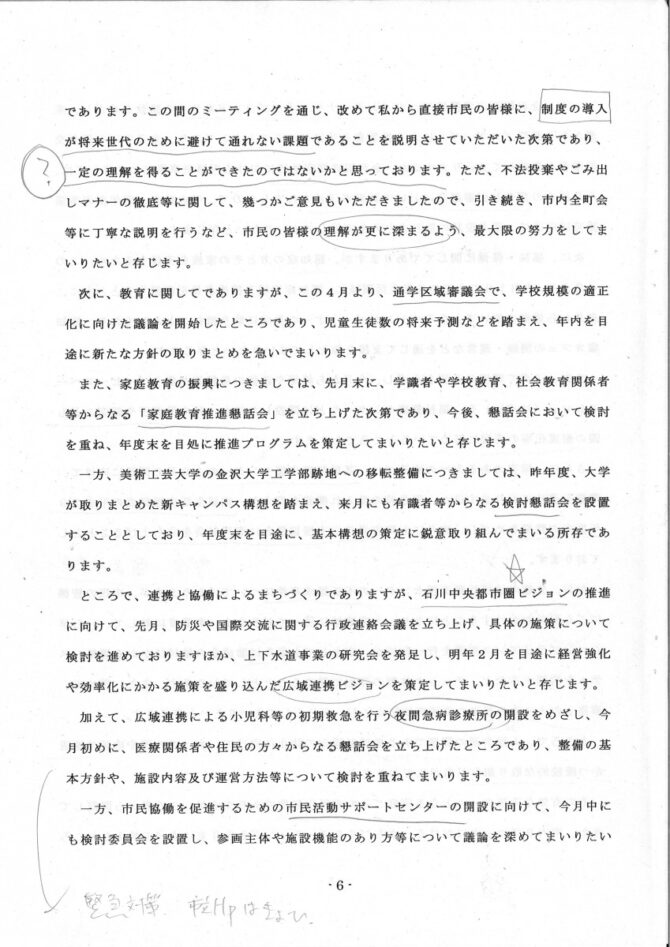 であります。この間のミーティングを通じ、改めて私から直接市民の皆様に、制度の導入
が将来世代のために避けて通れない課題であることを説明させていただいた次第であり、
?
一定の理解を得ることができたのではないかと思っております。ただ、不法投棄やごみ出
しマナーの徹底等に関して、幾つかご意見もいただきましたので、引き続き、市内全町会
等に丁寧な説明を行うなど、市民の皆様の理解が更に深まるよう、最大限の努力をしてま
いりたいと存じます。
次に、教育に関してでありますが、この４月より、通学区域審議会で、学校規模の適正
化に向けた議論を開始したところであり、児童生徒数の将来予測などを踏まえ、年内を目
途に新たな方針の取りまとめを急いでまいります。
また、家庭教育の振興につきましては、先月末に、学識者や学校教育、社会教育関係者
等からなる「家庭教育推進懇話会」を立ち上げた次第であり、今後、懇話会において検討
を重ね、年度末を目処に推進プログラムを策定してまいりたいと存じます。
一方、美術工芸大学の金沢大学工学部跡地への移転整備につきましては、昨年度、大学
が取りまとめた新キャンパス構想を踏まえ、来月にも有識者等からなる検討懇話会を設置
することとしており、年度末を目途に、基本構想の策定に鋭意取り組んでまいる所存であ
ります。
ところで、連携と協働によるまちづくりでありますが、石川中央都市圏ビジョンの推進
に向けて、先月、防災や国際交流に関する行政連絡会議を立ち上げ、具体の施策について
検討を進めておりますほか、上下水道事業の研究会を発足し、明年２月を目途に経営強化
や効率化にかかる施策を盛り込んだ広域連携ビジョンを策定してまいりたいと存じます。
加えて、広域連携による小児科等の初期救急を行う夜間急病診療所の開設をめざし、今
月初めに、医療関係者や住民の方々からなる懇話会を立ち上げたところであり、整備の基
本方針や、施設内容及び運営方法等について検討を重ねてまいります。
一方、市民協働を促進するための市民活動サポートセンターの開設に向けて、今月中に
も検討委員会を設置し、参画主体や施設機能のあり方等について議論を深めてまいりたい
- 6 -
緊急対策